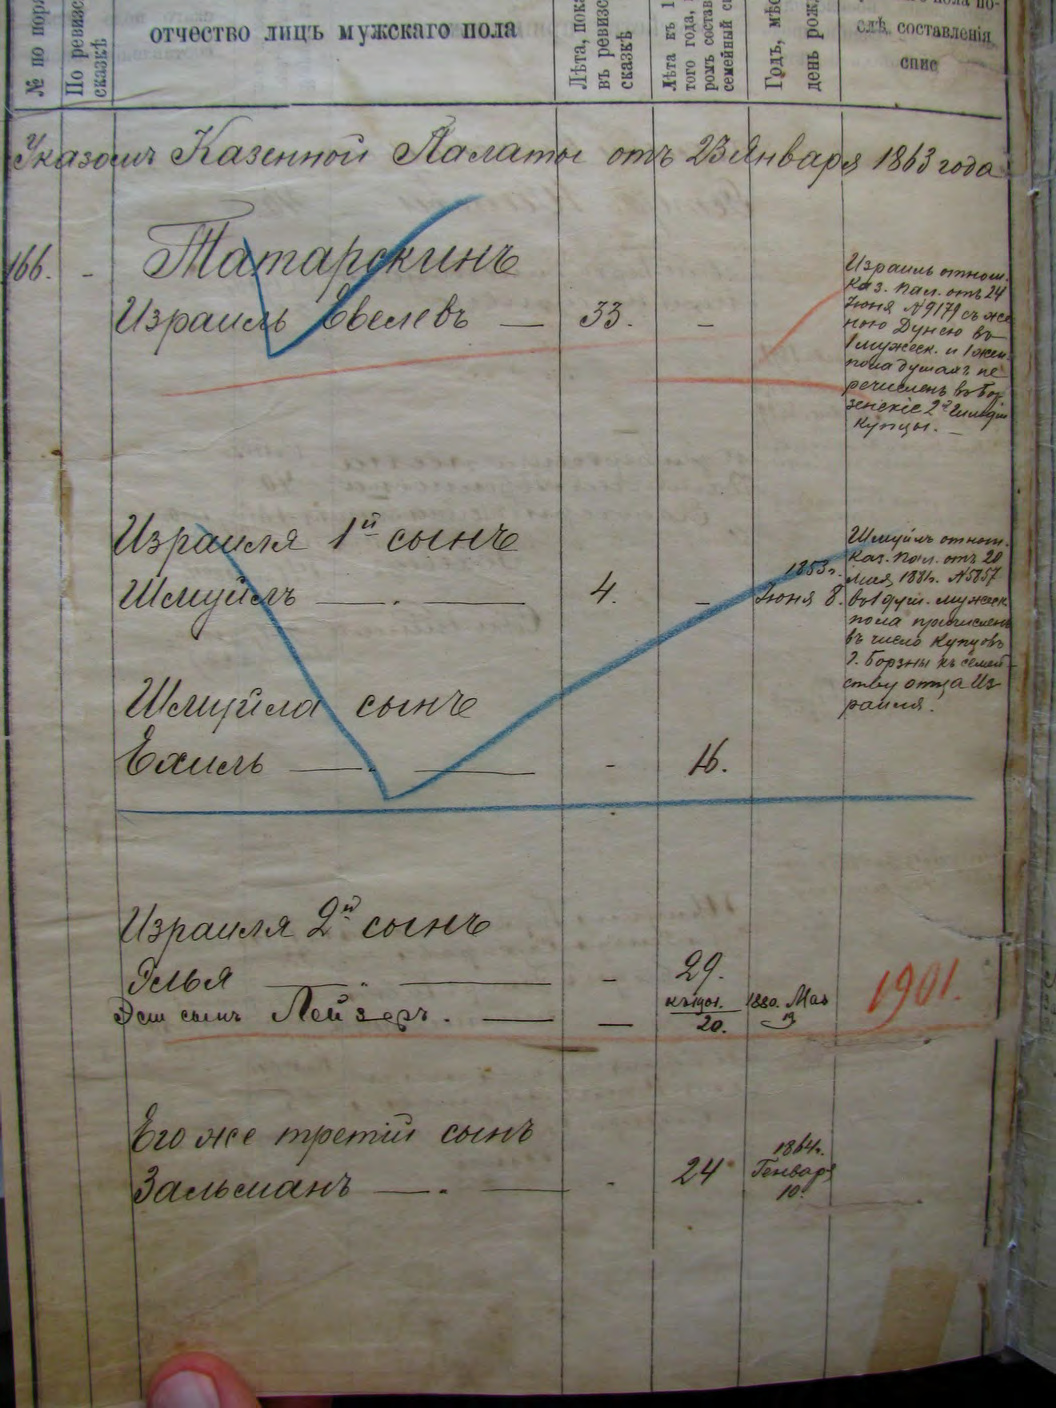 № по поря
По ревизс
сказкѣ
отчество лицъ мужскаго пола
Лѣта, пока
въ ревизс
сказкѣ
Лѣта къ 1
того года,
ромъ состав
семейный сп
Годъ, мѣс
день рож
слѣ составленія
спис
Указомъ Казенной Палаты отъ 23 Января 1863 года
166. - Татарскинъ
Израиль Евелевъ — 33. -
Израиль относ.
Каз. Пал. отъ 24
Іюня №9179 съ же
ною Дунею въ
1 мужеск. и 1 жен.
пола душахъ пе
речисленъ въ Бор
зенскіе 2й Гильдіи
купцы. —
Израиля 1й сынъ
Шмуйлъ — . — 4. - 1853г. Іюня 8.
Шмуйлъ относ.
Каз. Пал. отъ 20
мая 1881г. №5857
въ 1 душ. мужеск
пола причисленъ
въ число купцовъ
г. Борзны къ семей
ству отца Из
раиля.
Шмуйла сынъ
Ехиль — . — - 16.
Израиля 2й сынъ
Элья — . — - 29.
Эли сынъ Лейзеръ. — — 20. 1880. Мая
1901.
Его же третій сынъ
Зальманъ — . — - 24 1864г. Генваря 10.